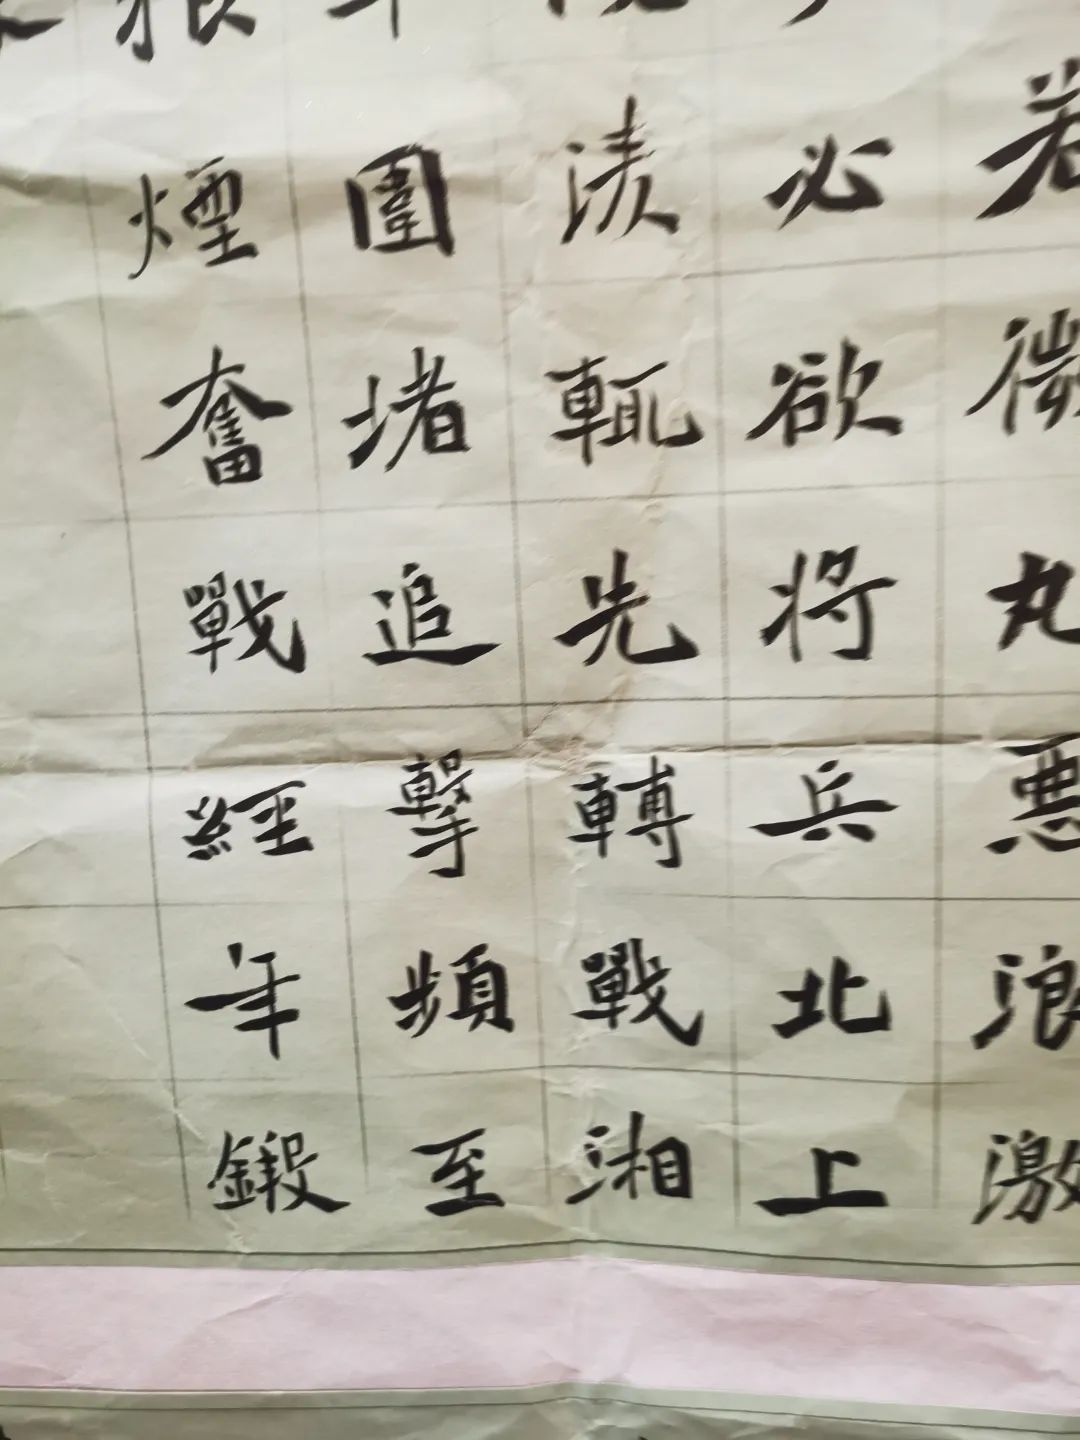 若微丸惡浪激
必欲將兵北上
渍輒先轉戰湘
圍堵追擊頻至
煙奮戰經年鍛